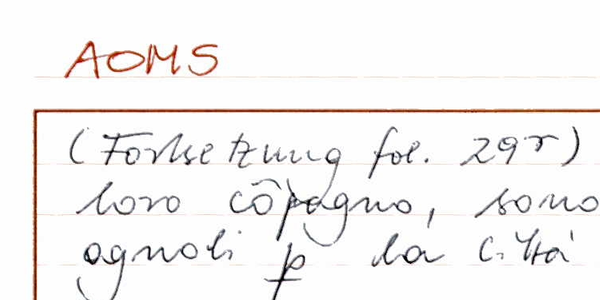 AOMS
(Fortsetzung fol. 29r)
loro cōpagno, sono
agnoli p̱ la città